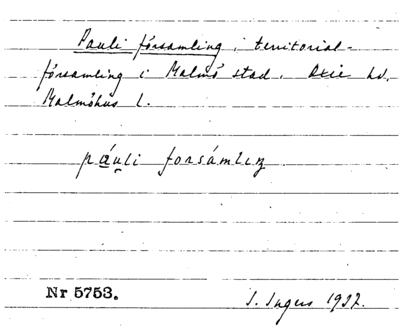 Pauli församling, territorial-
församling i Malmö stad. Oxie hd.
Malmöhus l.
pá̱u̯li forsámlıŋ
Nr 5753.
I. Ingers 1932.